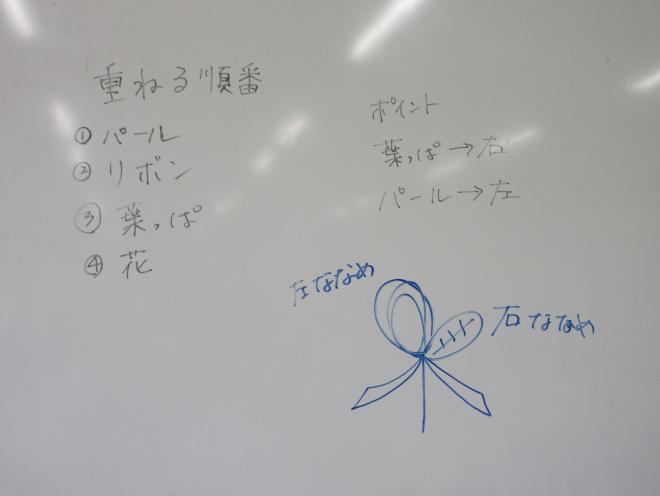 重ねる順番
① パール
② リボン
③ 葉っぱ
④ 花
ポイント
葉っぱ→右
パール→左
左ななめ
右ななめ